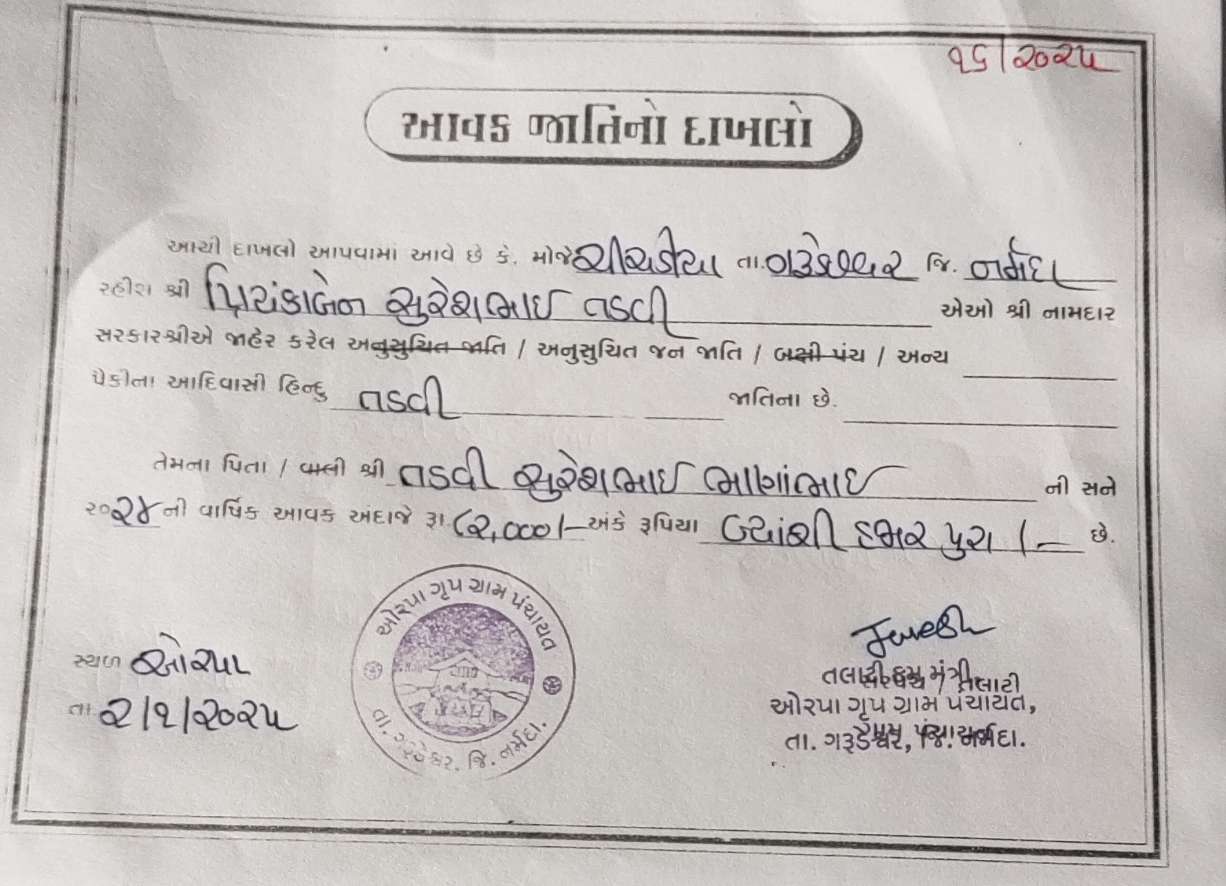 ૧૬/૨૦૨૫
આવક જાતિનો દાખલો
આથી દાખલો આપવામાં આવે છે કે. મોજે તા. ગરૂડેશ્વર જિ. નર્મદા
રહીશ શ્રી પ્રિયંકાબેન સુરેશભાઇ તડવી એઓ શ્રી નામદાર
સરકારશ્રીએ જાહેર કરેલ અનુસુચિત જાતિ / અનુસુચિત જન જાતિ / બક્ષી પંચ / અન્ય
પૈકીના આદિવાસી હિન્દુ તડવી જાતિના છે.
તેમના પિતા / વાલી શ્રી તડવી સુરેશભાઇ ભાણાંભાઇ ની સને
૨૦૨૪ ની વાર્ષિક આવક અંદાજે રૂા. ૮૨,૦૦૦/- અંકે રૂપિયા બ્યાંશી હજાર પુરા /- છે.
ઓરપા ગૃપ ગ્રામ પંચાયત
તા. ગરૂડેશ્વર. જિ. નર્મદા.
સ્થળ ઓરપા
તા. ૨/૧/૨૦૨૫
તલાટી કમ મંત્રી
સરપંચ / તલાટી
ઓરપા ગૃપ ગ્રામ પંચાયત,
ગ્રામ પંચાયત
તા. ગરૂડેશ્વર, જિ. નર્મદા.